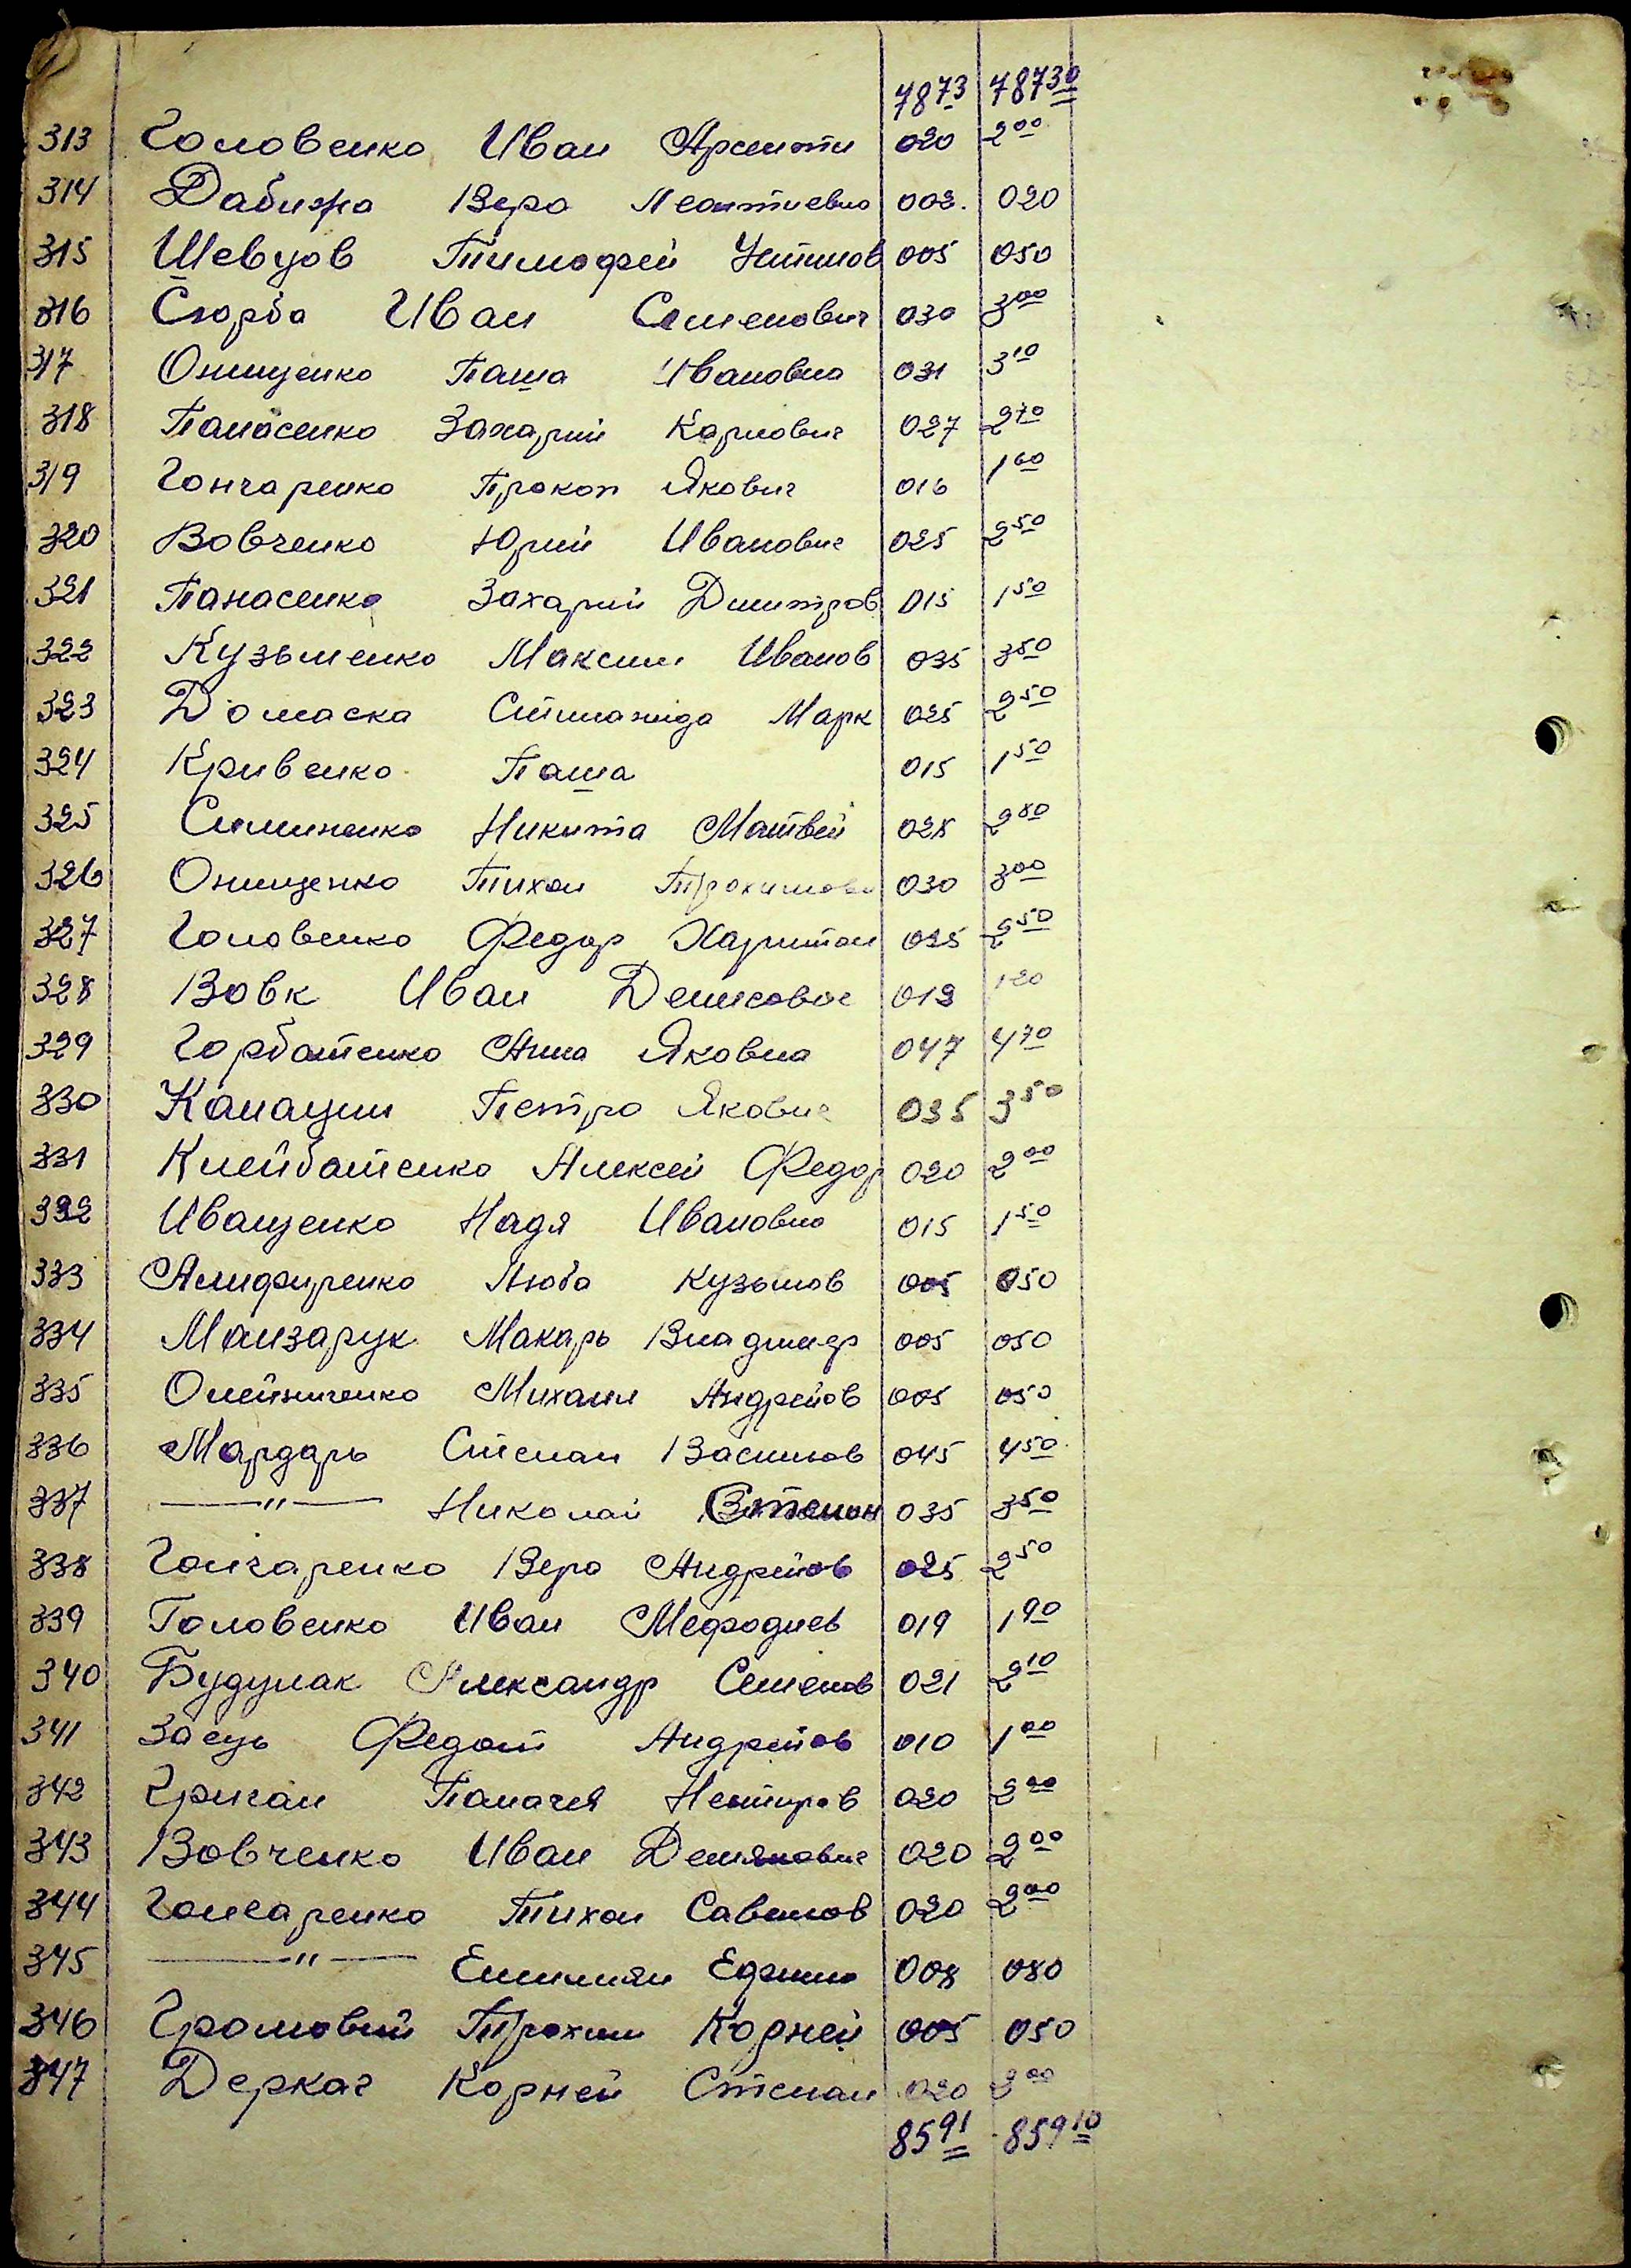 78 73 787 30
313 Головенко Иван Арсенти 020 2 00
314 Дабижа Вера Леонтиевна 002. 020
315 Шевцов Тимофей Устинов 005 050
316 Сюрба Иван Семенович 030 3 00
317 Онищенко Паша Ивановна 031 3 10
318 Панасенко Захарий Карпович 027 2 70
319 Гончаренко Прокоп Якович 016 1 60
320 Вовченко Юрий Иванович 025 2 50
321 Панасенко Захарий Дмитров 015 1 50
322 Кузьменко Максим Иванов 035 3 50
323 Домаска Марк 025 2 50
324 Кривенко Паша 015 1 50
325 Симиненко Никита Матвей 028 2 80
326 Онищенко Тихон Трохимов 030 3 00
327 Головенко Федор Харитон 025 2 50
328 Вовк Иван Денисович 012 1 20
329 Горбатенко Анна Яковна 047 4 70
330 Канацин Петро Якович 035 3 50
331 Клейбатенко Алексей Федор 020 2 00
332 Иващенко Надя Ивановна 015 1 50
333 Алифиренко Люба Кузьмов 005 050
334 Манзарук Макарь Владимир 005 050
335 Олейниченко Михаил Андрейов 005 050
336 Мардарь Степан Васильов 045 4 50
337 —"— Николай Степан 035 3 50
338 Гончаренко Вера Андрейов 025 2 50
339 Головенко Иван Мефодиев 019 1 90
340 Будулак Александр Семенов 021 2 10
341 Заець Федот Андрейов 010 1 00
342 Григан 020 2 00
343 Вовченко Иван Демянович 020 2 00
344 Гончаренко Тихон Савелов 020 2 00
345 —"— Емилиян 008 080
346 Громовий Трохим Корней 005 050
347 Деркач Корней Степан 020 2 00
85 91 859 10